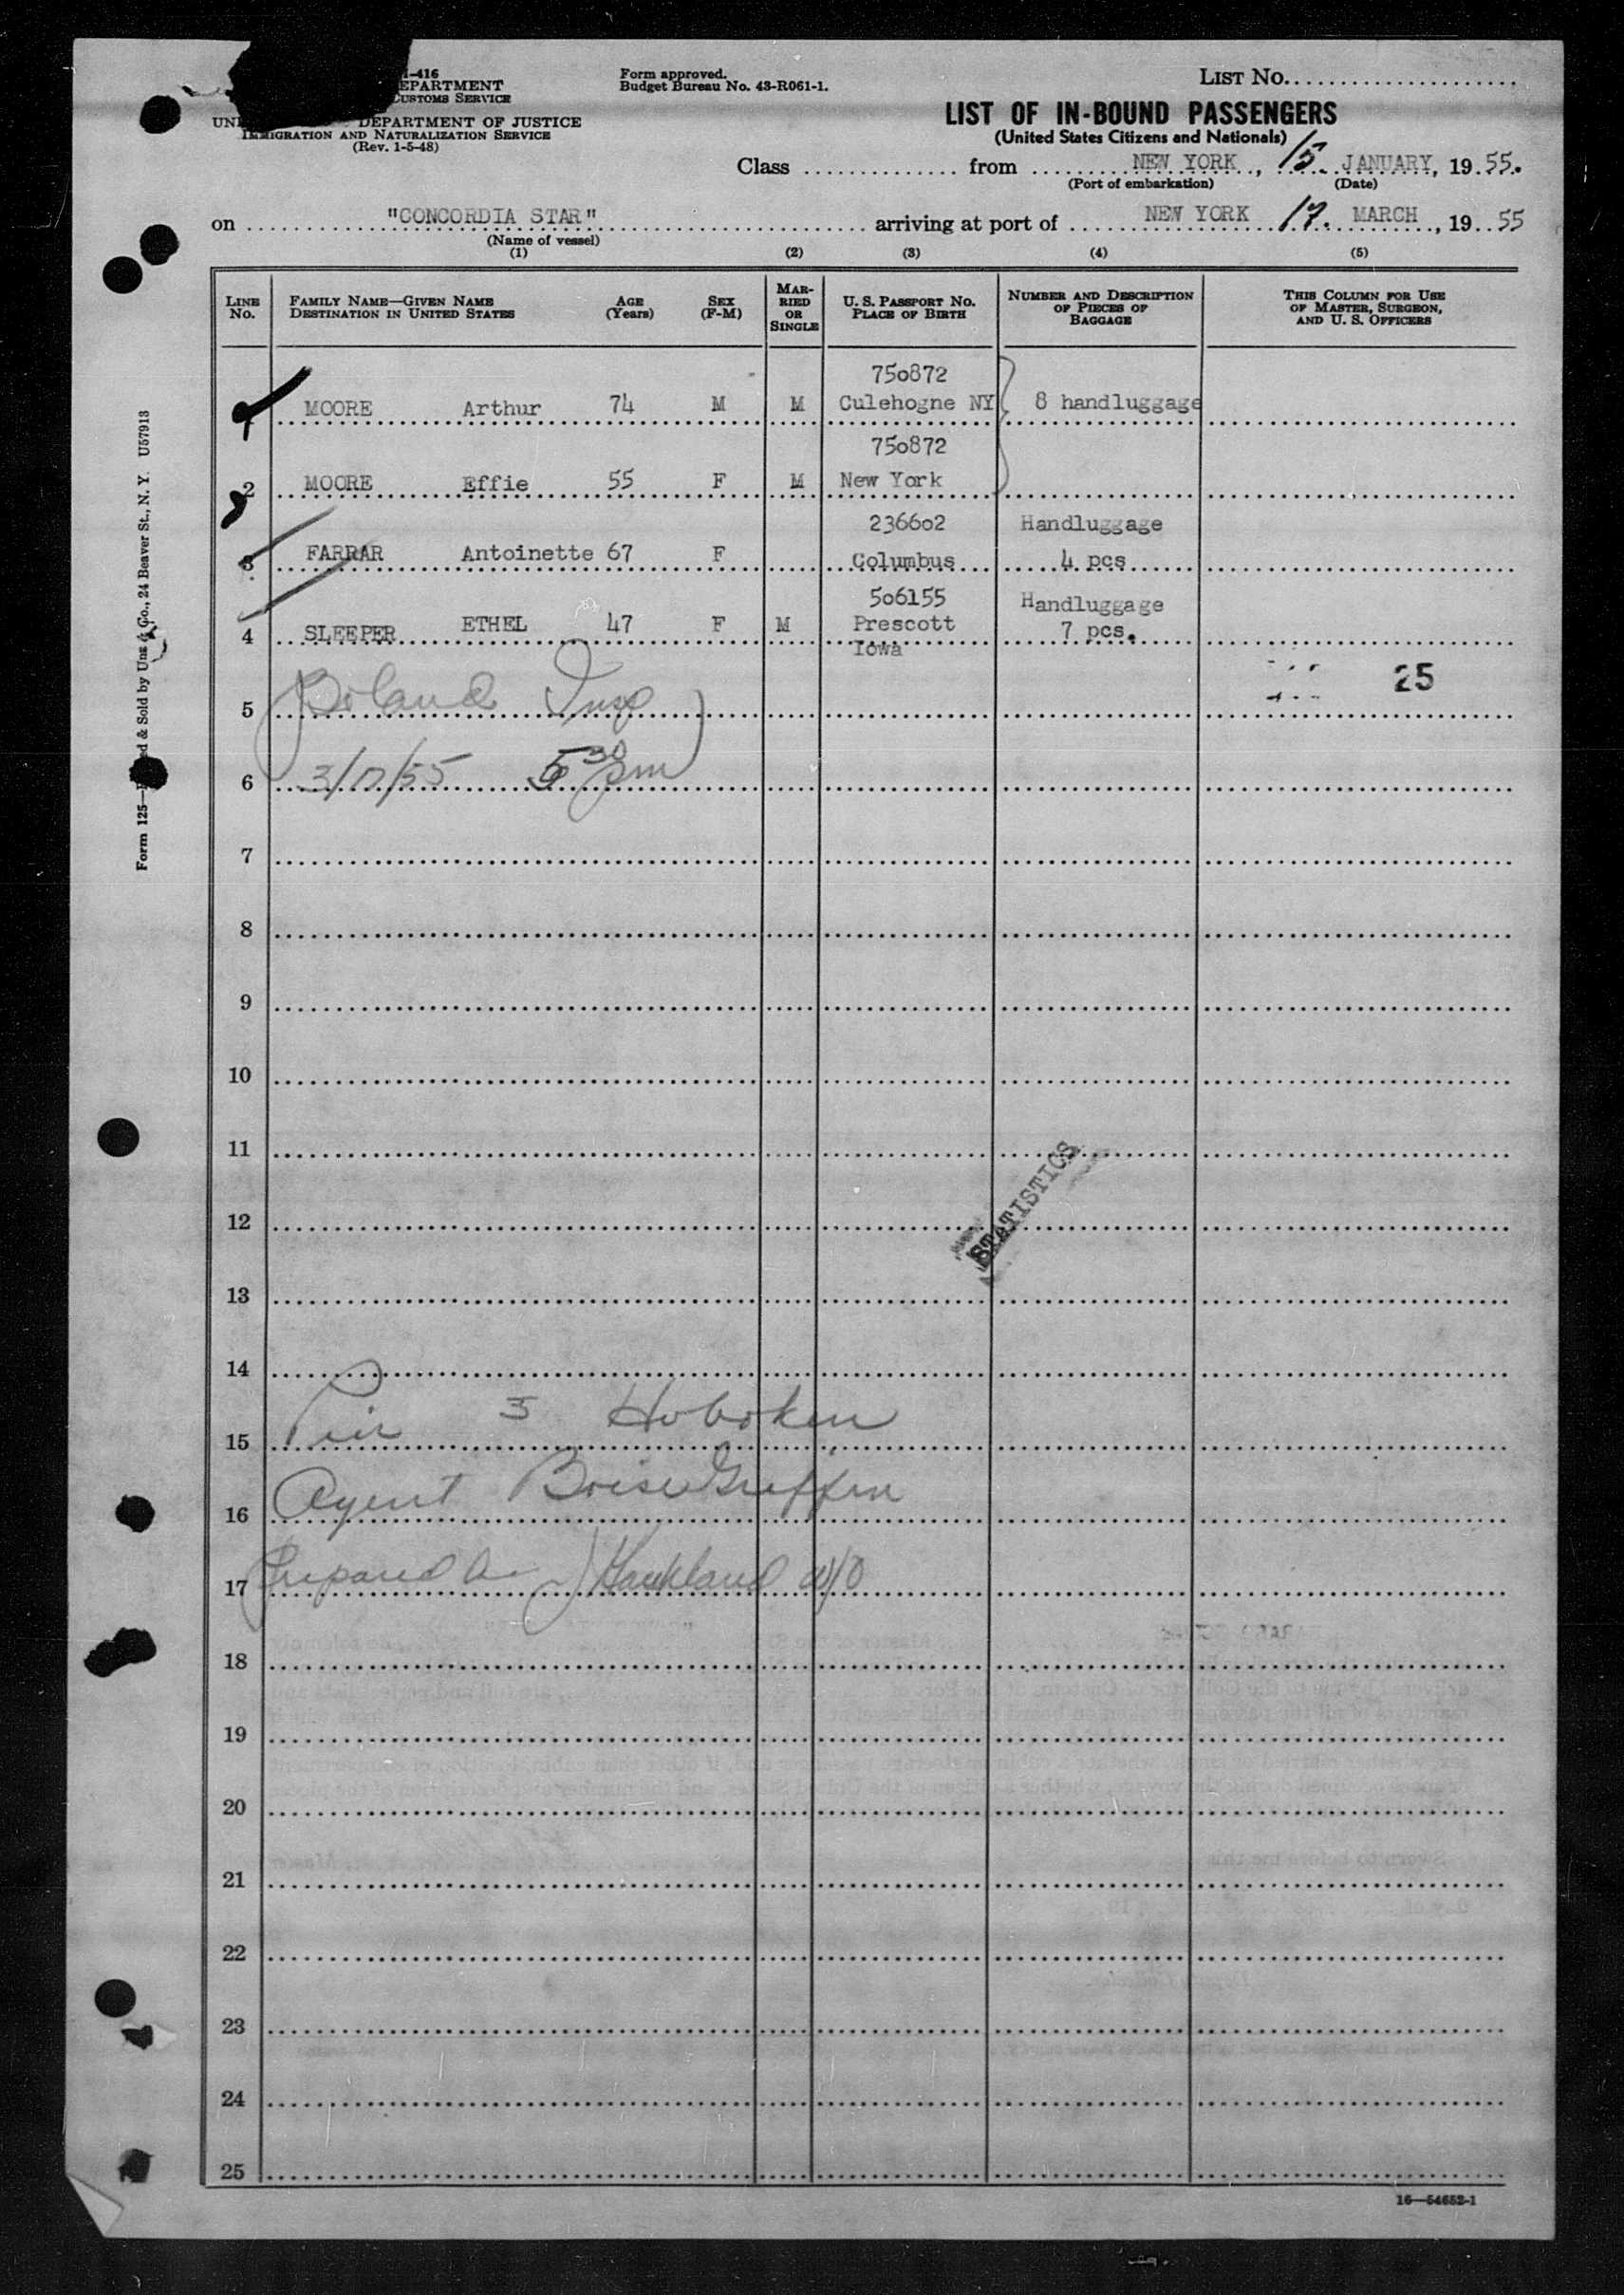 I-416
EPARTMENT
CUSTOMS SERVICE
DEPARTMENT OF JUSTICE
IMMIGRATION AND NATURALIZATION SERVICE
(Rev. 1-5-48)
Form approved.
Budget Bureau No. 43-R061-1.
LIST NO.
LIST OF IN-BOUND PASSENGERS
(United States Citizens and Nationals)
Class from NEW YORK, 15. JANUARY, 1955.
(Port of embarkation) (Date)
on "CONCORDIA STAR" arriving at port of NEW YORK 17. MARCH, 1955
(Name of vessel)
(1) (2) (3) (4) (5)
LINE No. FAMILY NAME—GIVEN NAME DESTINATION IN UNITED STATES AGE (Years) SEX (F-M) MARRIED OR SINGLE U. S. PASSPORT No. PLACE OF BIRTH NUMBER AND DESCRIPTION OF PIECES OF BAGGAGE THIS COLUMN FOR USE OF MASTER, SURGEON, AND U. S. OFFICERS
750872
MOORE Arthur 74 M M Culehogne NY 8 handluggage
750872
2 MOORE Effie 55 F M New York
236602 Handluggage
3 FARRAR Antoinette 67 F Columbus 4 pcs
506155 Handluggage
4 SLEEPER ETHEL 47 F M Prescott 7 pcs.
Iowa
25
5 Boland Insp
6 3/17/55 5 30 pm
7
8
9
10
11
STATISTICS
12
13
14
15 Pier 3 Hoboken
16 Agent Boise Griffin
17 Prepared
18
19
20
21
22
23
24
25
16—54652-1
Form 125— ed & Sold by Unz & Co., 24 Beaver St., N. Y. U57913